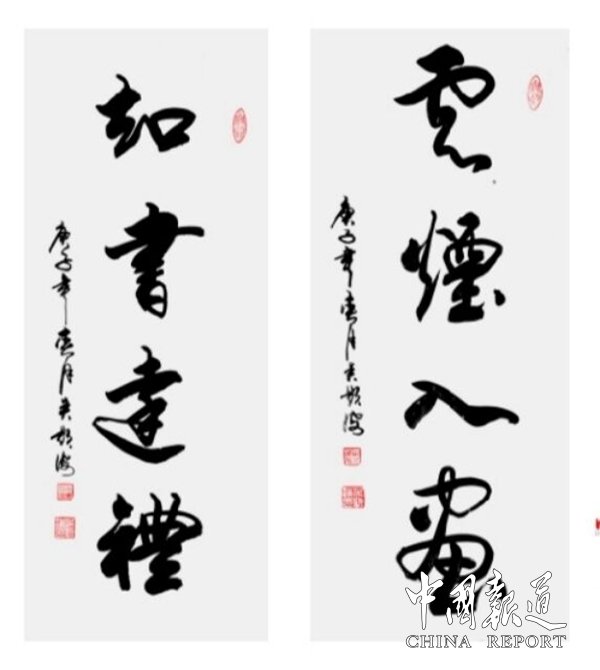 雲煙入畫
庚子年春月
知書達禮
庚子年春月
中國報道
CHINA REPORT